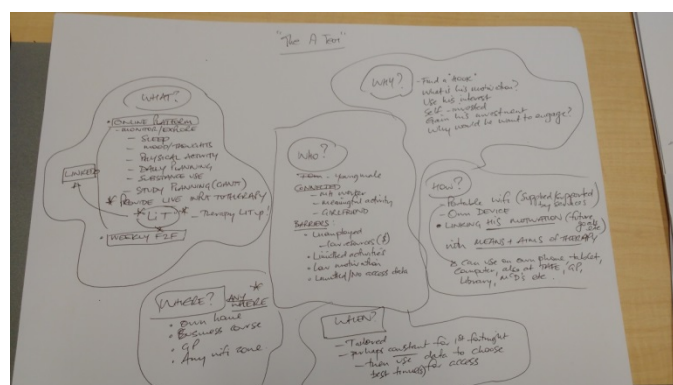 "The A Team"
WHAT?
• ONLINE PLATFORM
- MONITOR/EXPLORE
- SLEEP
- MOOD/THOUGHTS
- PHYSICAL ACTIVITY
- DAILY PLANNING
- SUBSTANCE USE
- STUDY PLANNING (GANTT)
* PROVIDE LIVE INPUT TO THERAPY
LINKED
* LIT * - "Therapy LIT up"
• WEEKLY F2F
WHY?
- Find a "HOOK"
What is his motivation?
Use his interest
Self-invested
Gain his investment
Why would he want to engage?
WHO?
young male
CONNECTED
- MH worker
- Meaningful activity
- GIRLFRIEND
BARRIERS:
• Unemployed
- low resources ($)
• Limited activities
• Low motivation
• Limited/No access data
HOW?
• Portable wifi (supplied/operated by
• Own DEVICE
• LINKING HIS MOTIVATION (future goals etc
with MEANS + AIMS of THERAPY
can use on own phone, tablet,
computer, also at TAFE, GP,
Library, McD's etc.
WHERE? ANYWHERE *
• Own home
• Business course
• GP
• Any wifi zone
WHEN?
- Tailored
- perhaps constant for 1st fortnight
- then use data to choose
best time(s) for access